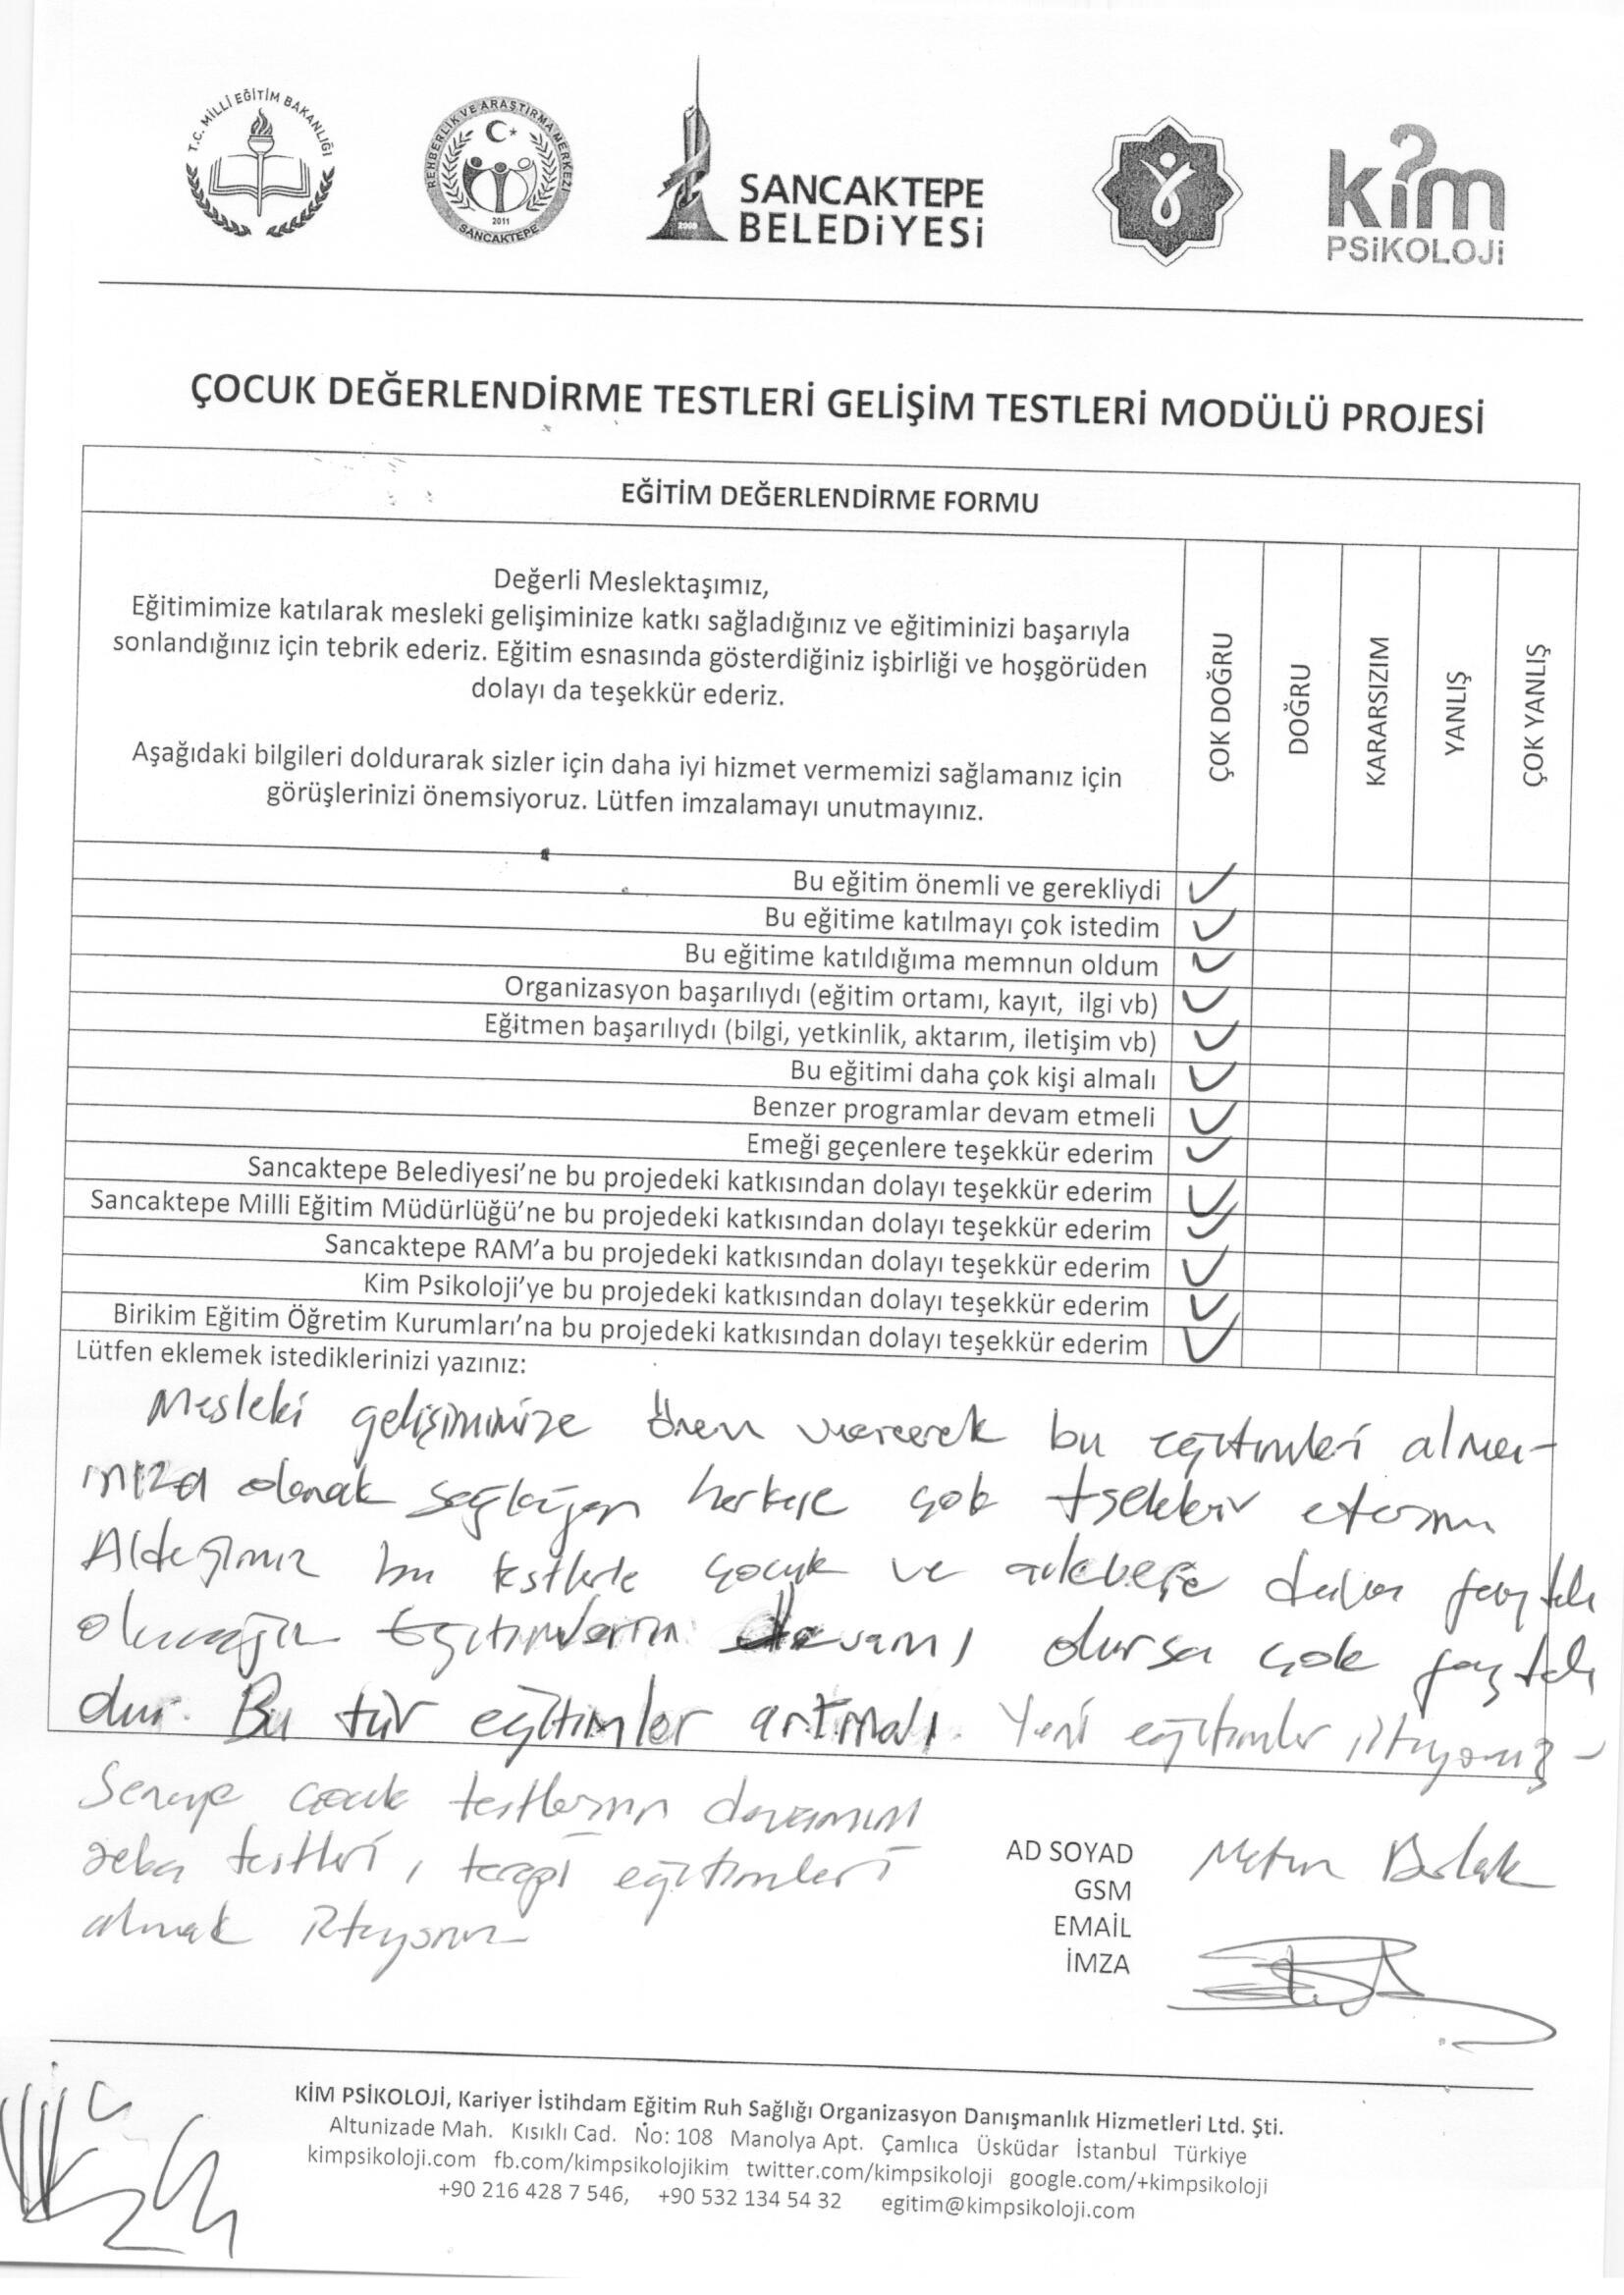 T.C. MİLLİ EĞİTİM BAKANLIĞI
REHBERLİK VE ARAŞTIRMA MERKEZİ
2011
SANCAKTEPE
2008
SANCAKTEPE
BELEDİYESİ
kim
PSİKOLOJİ
ÇOCUK DEĞERLENDİRME TESTLERİ GELİŞİM TESTLERİ MODÜLÜ PROJESİ
EĞİTİM DEĞERLENDİRME FORMU
Değerli Meslektaşımız,
Eğitimimize katılarak mesleki gelişiminize katkı sağladığınız ve eğitiminizi başarıyla
sonlandığınız için tebrik ederiz. Eğitim esnasında gösterdiğiniz işbirliği ve hoşgörüden
dolayı da teşekkür ederiz.
Aşağıdaki bilgileri doldurarak sizler için daha iyi hizmet vermemizi sağlamanız için
görüşlerinizi önemsiyoruz. Lütfen imzalamayı unutmayınız.
ÇOK DOĞRU
DOĞRU
KARARSIZIM
YANLIŞ
ÇOK YANLIŞ
Bu eğitim önemli ve gerekliydi
Bu eğitime katılmayı çok istedim
Bu eğitime katıldığıma memnun oldum
Organizasyon başarılıydı (eğitim ortamı, kayıt, ilgi vb)
Eğitmen başarılıydı (bilgi, yetkinlik, aktarım, iletişim vb)
Bu eğitimi daha çok kişi almalı
Benzer programlar devam etmeli
Emeği geçenlere teşekkür ederim
Sancaktepe Belediyesi'ne bu projedeki katkısından dolayı teşekkür ederim
Sancaktepe Milli Eğitim Müdürlüğü'ne bu projedeki katkısından dolayı teşekkür ederim
Sancaktepe RAM'a bu projedeki katkısından dolayı teşekkür ederim
Kim Psikoloji'ye bu projedeki katkısından dolayı teşekkür ederim
Birikim Eğitim Öğretim Kurumları'na bu projedeki katkısından dolayı teşekkür ederim
Lütfen eklemek istediklerinizi yazınız:
Mesleki gelişimimize önem vererek bu eğitimleri alma-
mıza olanak sağlayan herkese çok teşekkür ederim
Aldığımız bu testlerle çocuk ve daha faydalı
olacağız Eğitimlerin devamı olursa çok faydalı
olur. Bu tür eğitimler artmalı. Yeni eğitimler istiyoruz-
Seneye çocuk testlerinin devamını
zeka testleri, terapi eğitimleri
almak istiyoruz
AD SOYAD Metin
GSM
EMAİL
İMZA
KİM PSİKOLOJİ, Kariyer İstihdam Eğitim Ruh Sağlığı Organizasyon Danışmanlık Hizmetleri Ltd. Şti.
Altunizade Mah. Kısıklı Cad. No: 108 Manolya Apt. Çamlıca Üsküdar İstanbul Türkiye
kimpsikoloji.com fb.com/kimpsikolojikim twitter.com/kimpsikoloji google.com/+kimpsikoloji
+90 216 428 7 546, +90 532 134 54 32 egitim@kimpsikoloji.com